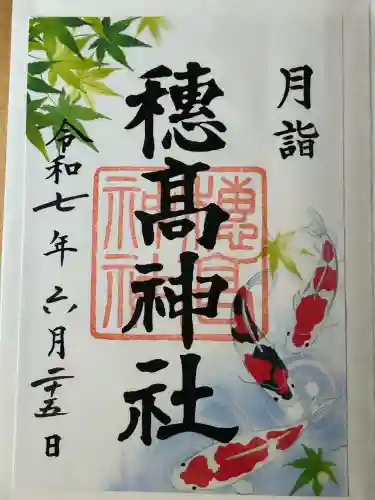 月詣
穂髙神社
令和七年六月二十五日
穂髙
神社